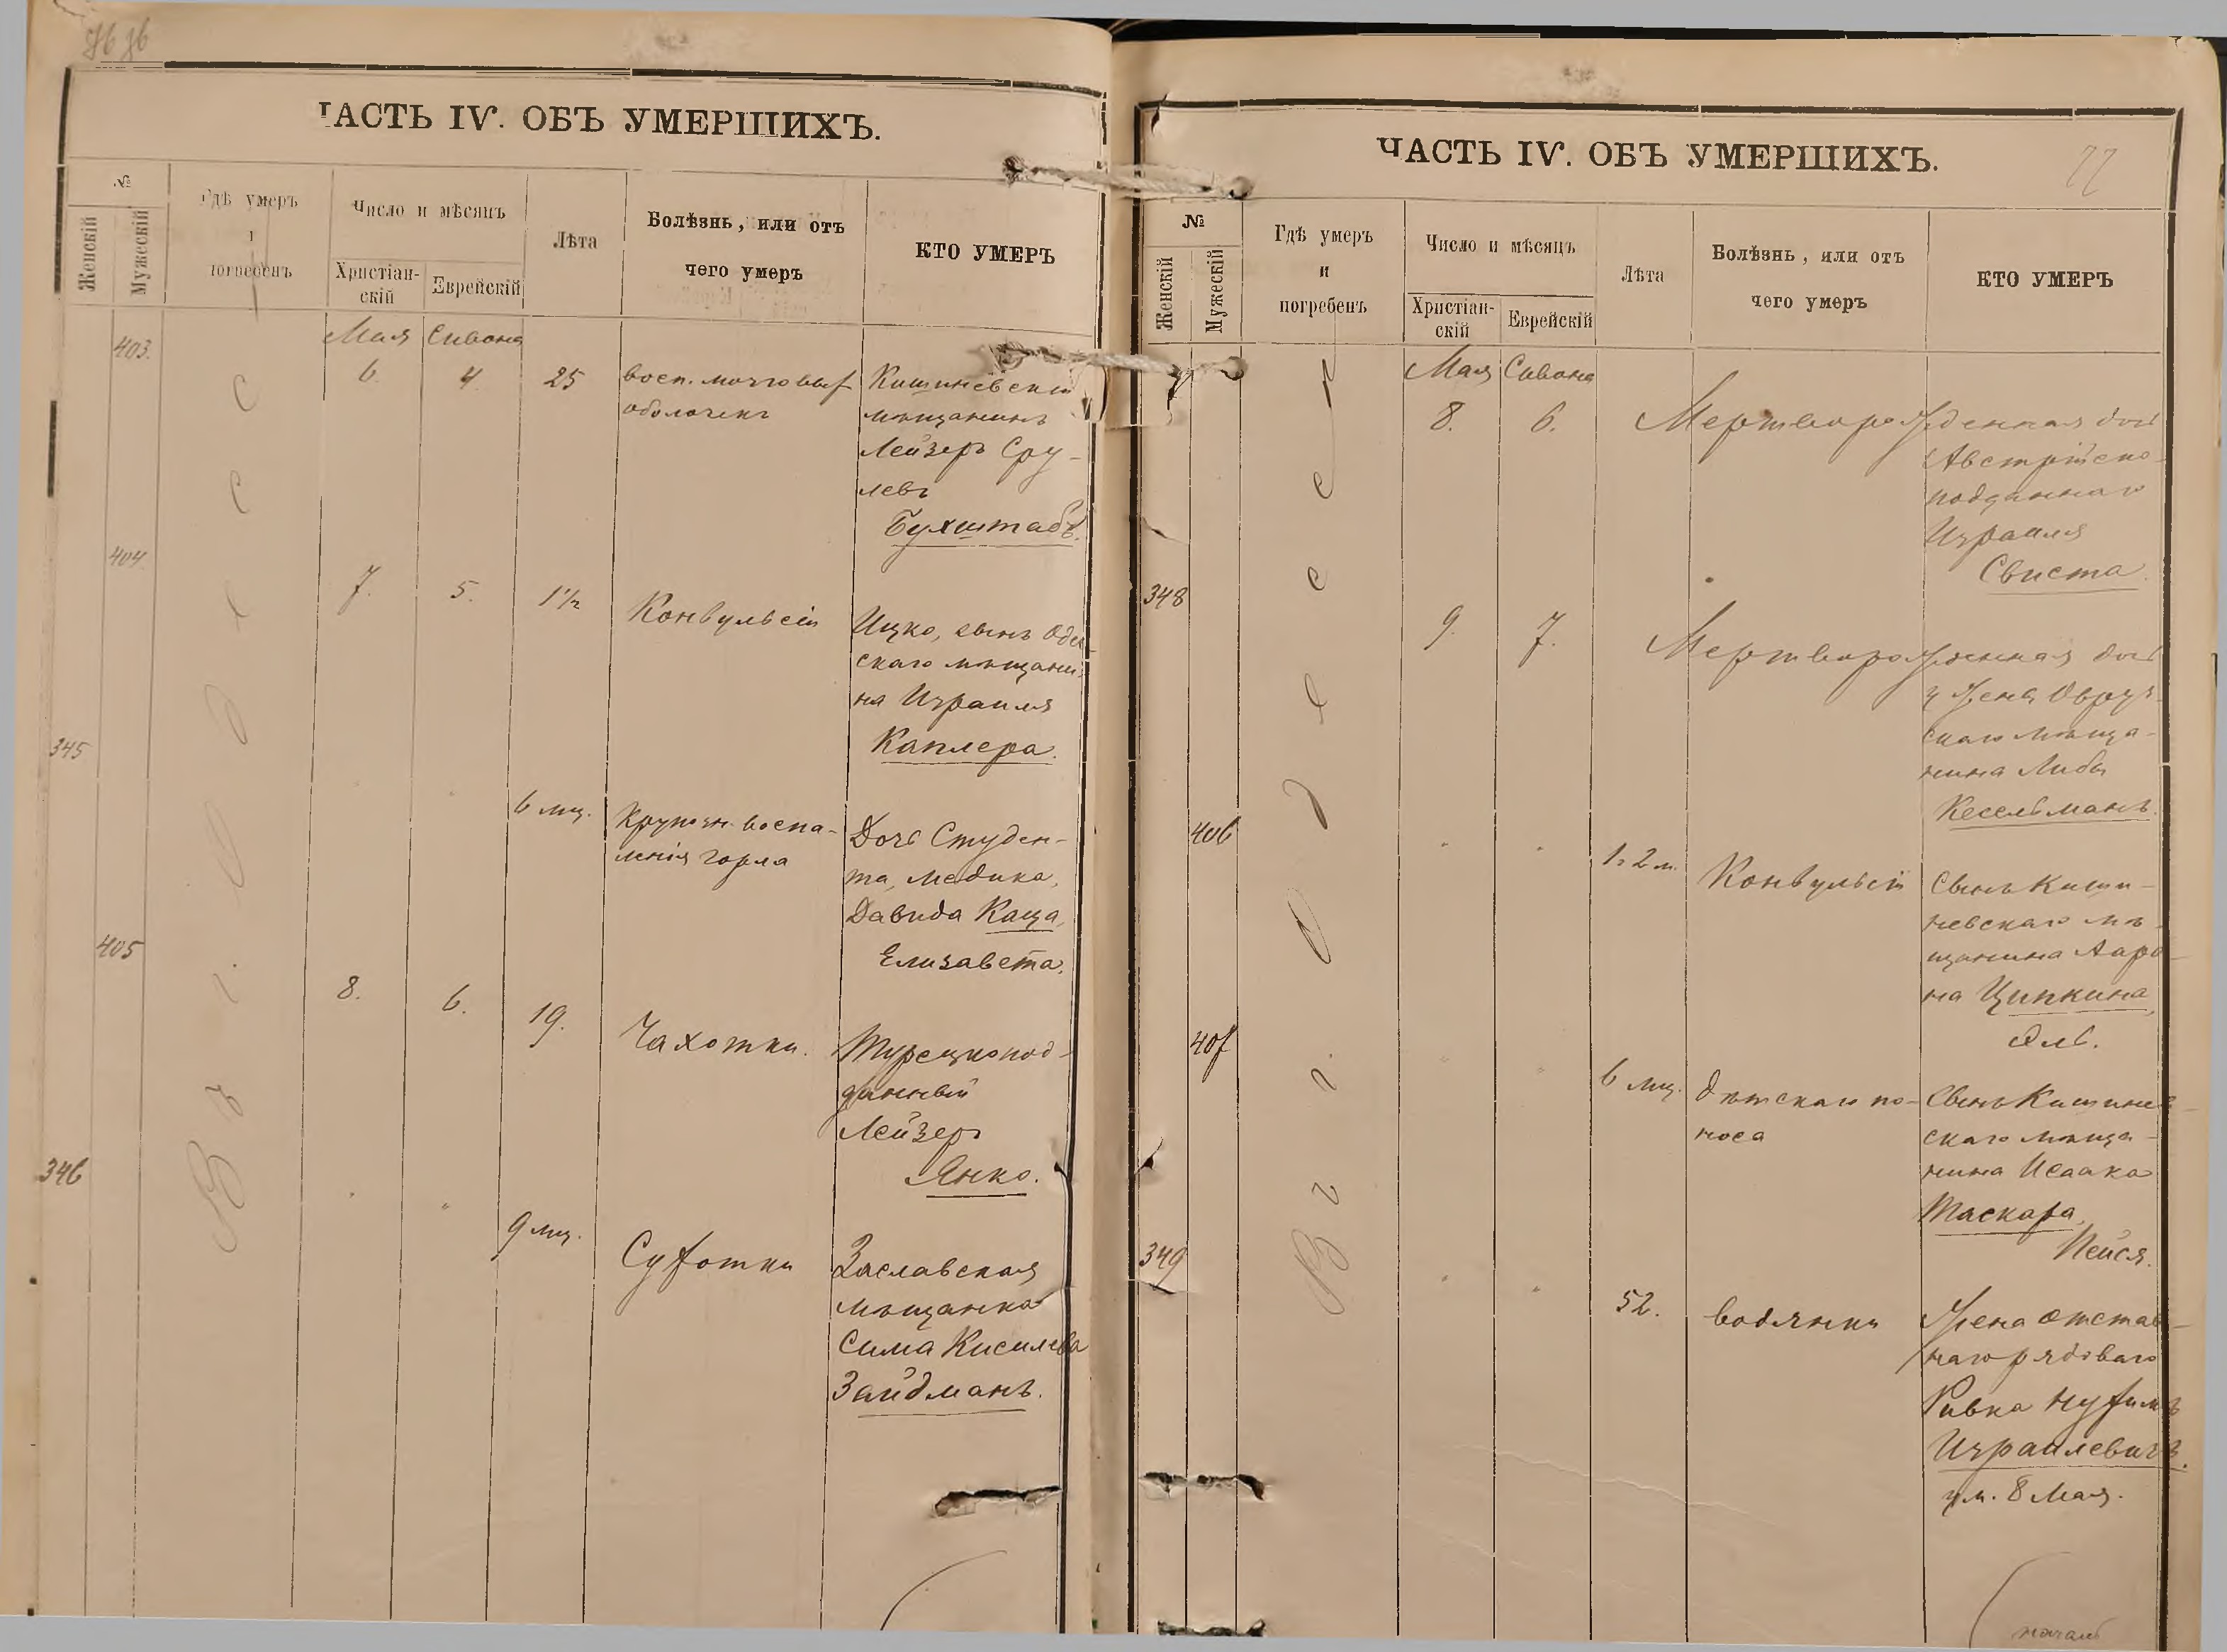 ЧАСТЬ IV. ОБЪ УМЕРШИХЪ.
№
Женскій
Мужескій
Гдѣ умеръ
и
погребенъ
Число и мѣсяцъ
Христіан-
скій
Еврейскій
Лѣта
Болѣзнь, или отъ
чего умеръ
КТО УМЕРЪ
Въ г. Одессѣ
403.
Мая Сивона
6. 4. 25
восп. мозговых
оболочекъ
Кишиневскій
мѣщанинъ
Лейзеръ Сру-
левъ
Бухштабъ.
404.
7. 5. 1½
Конвульсіи
Ицко, сынъ Одес-
скаго мѣщани-
на Израиля
Каплера.
345
6 мц.
крупозн. воспа-
ленія горла
Дочь Студен-
та, медика,
Давида Каца,
Елизавета.
405
8. 6. 19.
Чахотки.
Турецкопод-
данный
Лейзеръ
Янко.
346
9 мц.
Сухотки
Заславская
мѣщанка
Сима Кисилева
Зайдманъ.
ЧАСТЬ IV. ОБЪ УМЕРШИХЪ.
77
№
Женскій
Мужескій
Гдѣ умеръ
и
погребенъ
Число и мѣсяцъ
Христіан-
скій
Еврейскій
Лѣта
Болѣзнь, или отъ
чего умеръ
КТО УМЕРЪ
Въ г. Одессѣ
Мая Сивона
8. 6.
Мертворожденная дочь
Австрійско-
подданнаго
Израиля
Свиста.
348
9. 7.
Мертворожденная дочь
у жены Овруч-
скаго мѣща-
нина Либы
Кесельманъ.
406
1г. 2 м.
Конвульсій
Сынъ Киши-
невскаго мѣ-
щанинаАаро-
на Ципкина,
Эль.
407
6 мц.
дѣтскаго по-
носа
Сынъ Кишинев-
скаго мѣща-
нина Исаака
Таскара,
Пейся.
349
52.
водянки
Жена отстав-
наго рядоваго
Ривка Нухимъ
Израилевичъ.
ум. 8 Мая.